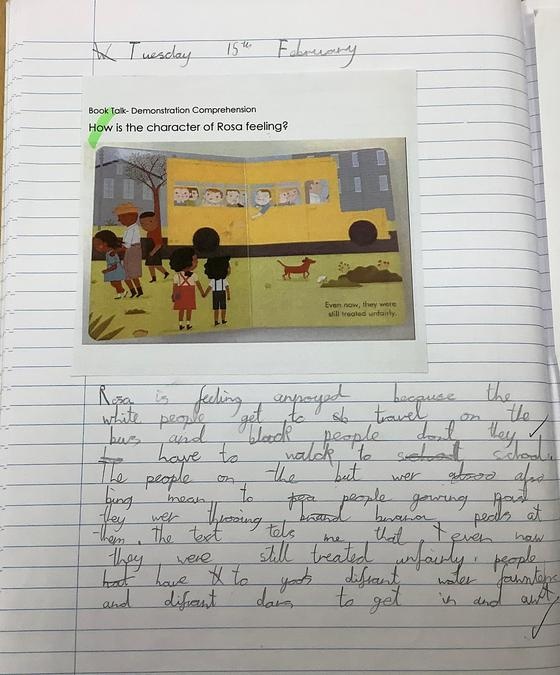 W Tuesday 15th February
Book Talk- Demonstration Comprehension
How is the character of Rosa feeling?
Even now, they were
still treated unfairly.
Rosa is feeling annoyed because the
white people get to travel on the
bus and black people dont they
have to walck to school.
The people on the but wer also
bing mean to people gowing
they wer throsing banana peals at
them. the text tels me that even now
they were still treated unfairly. people
have to difrant water
and difrant dars to get in and awt